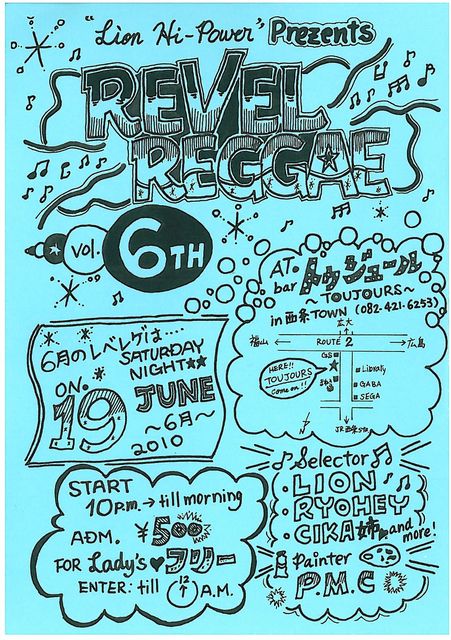 "Lion Hi-Power" Prezents
REVEL
REGGAE
vol. 6TH
AT.
bar トゥジュール
~TOUJOURS~
in 西条TOWN (082-421-6253)
広大
福山 ← ROUTE 2 → 広島
GS
HERE!!
TOUJOURS
come on!!
Library
GABA
SEGA
N
JR西条
6月のレベレゲは....
SATURDAY
NIGHT★★
ON. 19 JUNE
~6月~
2010
START
10P.M. → till morning
ADM. ¥500
FOR Lady's♥フリー
ENTER: till 12 A.M.
Selector
・LION
・RYOHEY
・CIKA姉 and more!
Painter
・P.M.C